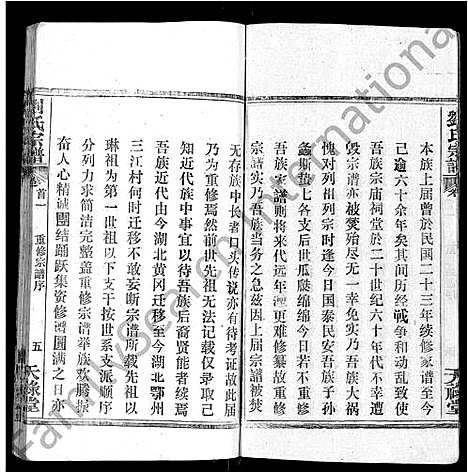 劉氏宗譜
卷首
天祿堂
本族上屆曾於民國二十三年續修家譜至今
已逾六十余年矣其間历經戰争和动乱致使
吾族宗庙祠堂於二十世纪六十年代不幸遭
毀宗譜亦被焚殆尽无一幸存实乃吾族大禍
愧对列祖列宗时逢今日国泰民安吾族子孙
繁多各支后世瓜瓞绵绵今日若不重修
吾族家譜則将来代远年湮更难修纂故重修
宗譜实乃吾族当务之急茲因上届宗譜被焚
无存族中長者口头传说亦有待考证故此届
乃为重修焉然前世老祖无法记载仅录取己
知近代族中事宜以待吾族后裔賢能者续焉
吾族近代由今湖北黄冈迁移至今湖北鄂州
三江村何时迁移不敢妄断宗譜所載先祖以
琳祖为第一世祖以下支干按世系支派顺序
分列力求简洁完整盖重修宗譜举族欢腾振
奋人心精诚團结踊跃集资修谱圆满之日亦
劉氏宗譜
卷首一
重修宗譜序
五
天祿堂
FamilySearch International